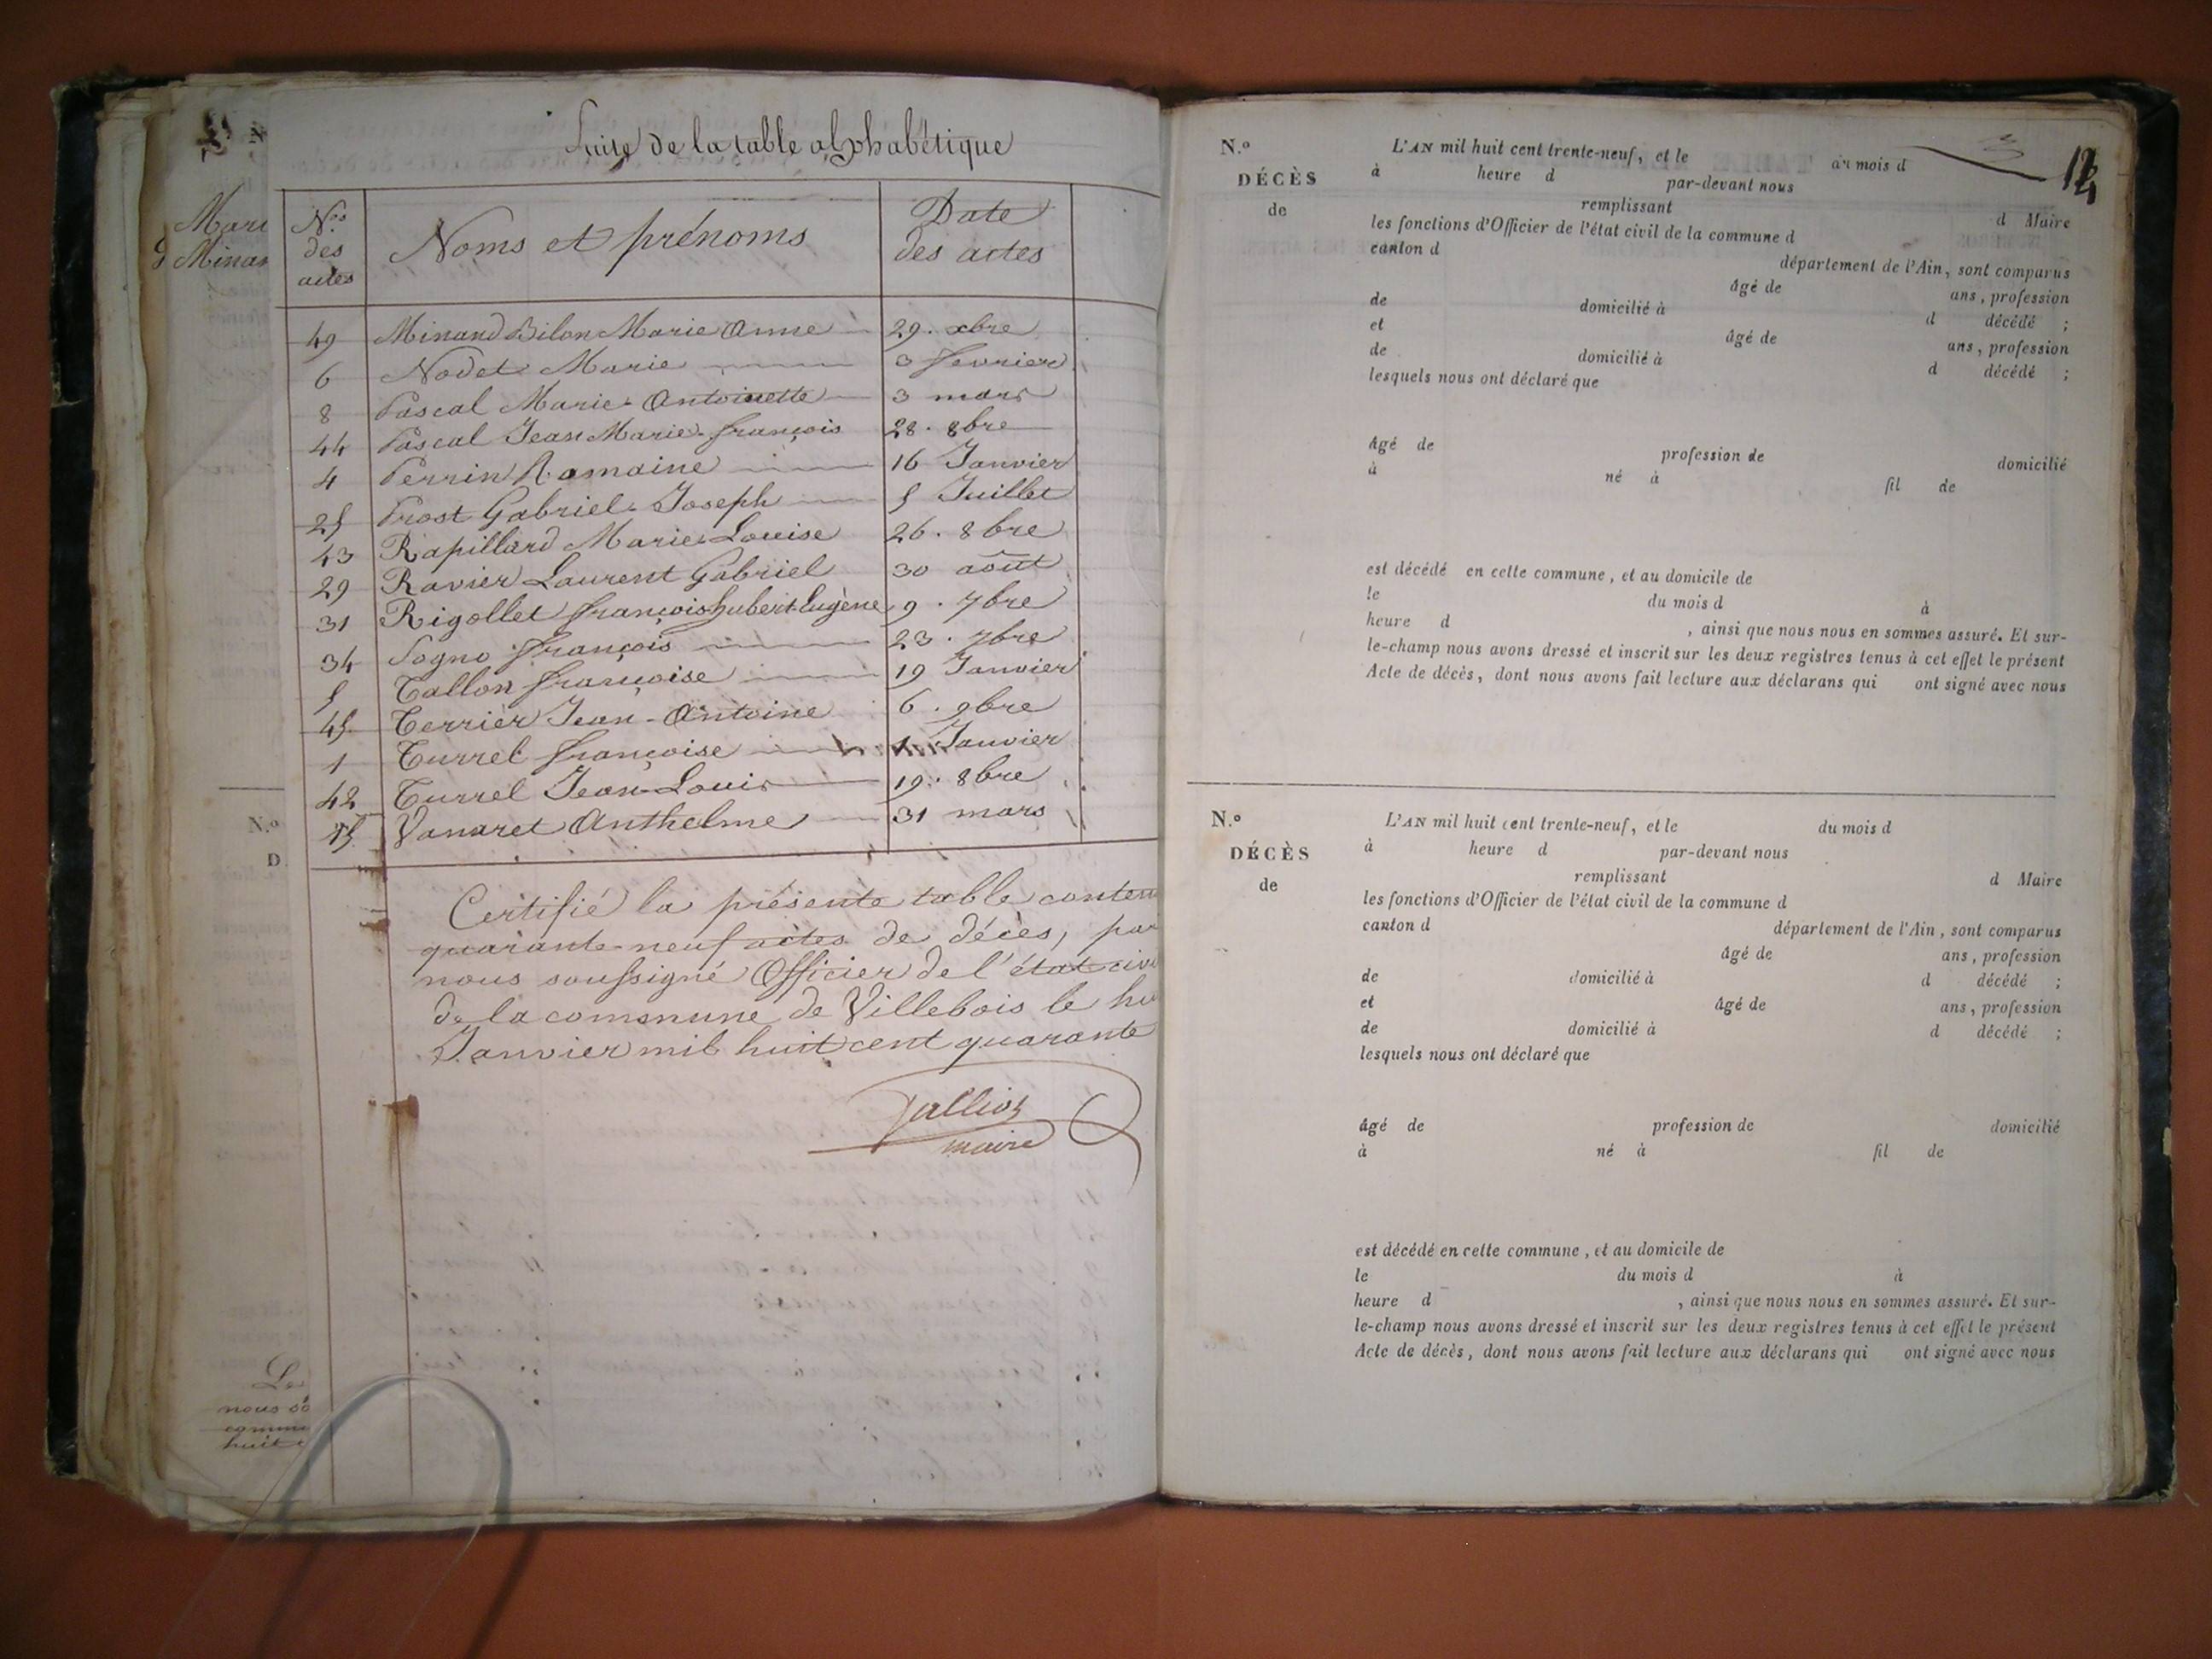 Suite de la table alphabétique
Mari
Minan
Nos des actes
Noms et prénoms
Date des actes
49 Minand Bilon Marie Anne 29. xbre
6 Nodet Marie 3 fevrier
8 Pascal Marie Antoinette 3 mars
44 Pascal Jean Marie françois 28. 8bre
4 Perrin Romaine 16 Janvier
25 Prost Gabriel Joseph 5 Juillet
43 Rapillard Marie Louise 26. 8bre
29 Ravier Laurent Gabriel 30 août
31 Rigollet françois hubert Eugène 9. 7bre
34 Sogno françois 23. 7bre
5 Tallon françoise 19 Janvier
45 Terrier Jean-Antoine 6. 9bre
1 Turrel françoise 1 Janvier
42 Turrel Jean-Louis 19. 8bre
15 Vanaret Anthelme 31 mars
Certifié la présente table conten
quarante-neuf actes de décès, par
nous soussigné Officier de l'état civi
de la commune de Villebois le hu
Janvier mil huit cent quarante
maire
N.o
D
Le
nous so
commu
huit c
N.o L'AN mil huit cent trente-neuf, et le du mois d
DÉCÈS à heure d par-devant nous
de remplissant
les fonctions d'Officier de l'état civil de la commune d d Maire
canton d
département de l'Ain, sont comparus
âgé de ans, profession
de domicilié à d décédé ;
et âgé de ans, profession
de domicilié à d décédé ;
lesquels nous ont déclaré que
âgé de profession de domicilié
à né à fil de
est décédé en cette commune, et au domicile de
le du mois d à
heure d , ainsi que nous nous en sommes assuré. Et sur-
le-champ nous avons dressé et inscrit sur les deux registres tenus à cet effet le présent
Acte de décès, dont nous avons fait lecture aux déclarans qui ont signé avec nous
N.o L'AN mil huit cent trente-neuf, et le du mois d
DÉCÈS à heure d par-devant nous
de remplissant d Maire
les fonctions d'Officier de l'état civil de la commune d
canton d département de l'Ain, sont comparus
âgé de ans, profession
de domicilié à d décédé ;
et âgé de ans, profession
de domicilié à d décédé ;
lesquels nous ont déclaré que
âgé de profession de domicilié
à né à fil de
est décédé en cette commune, et au domicile de
le du mois d à
heure d , ainsi que nous nous en sommes assuré. Et sur-
le-champ nous avons dressé et inscrit sur les deux registres tenus à cet effet le présent
Acte de décès, dont nous avons fait lecture aux déclarans qui ont signé avec nous